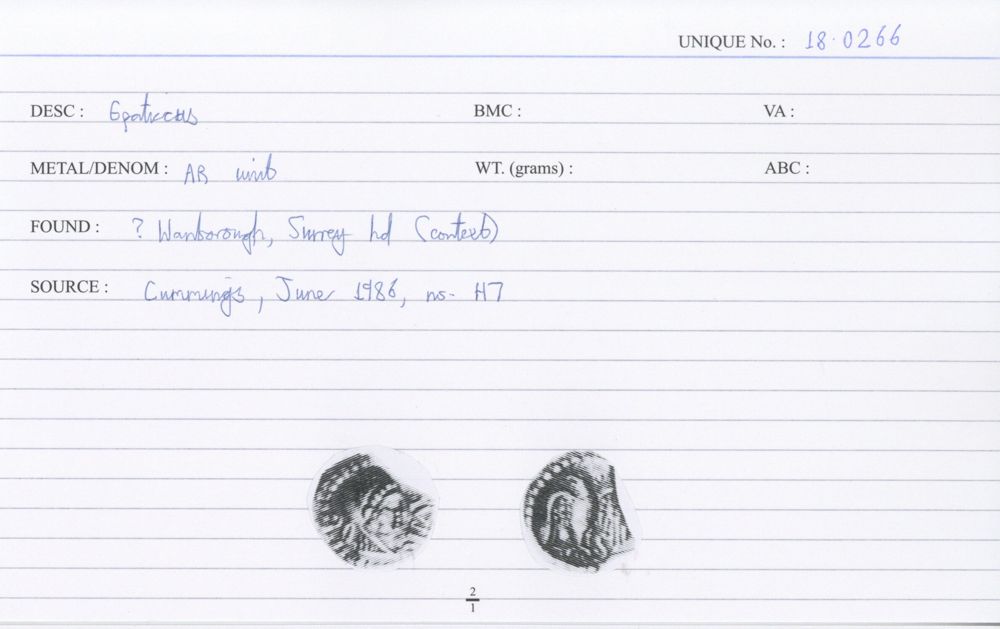 UNIQUE No. : 18·0266
DESC : Epaticcus BMC : VA :
METAL/DENOM : AR unit WT. (grams) : ABC :
FOUND : ? Wanborough, Surrey hd (context)
SOURCE : Cummings, June 1986, ns- H7
2
1